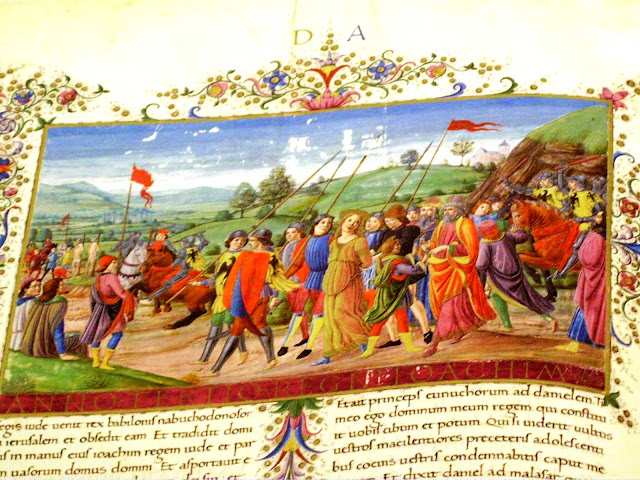 D A
IOACHIM
egis iude uenit rex babilonis nabuchodonosor
ierusalem et obsedit eam Et tradidit domi
in manus eius ioachim regem iude et par
uasorum domus domini Et asportauit e
Et ait princeps eunuchorum ad danielem Ti
meo ego dominum meum regem qui constitu
it uobis cibum et potum Qui si uiderit uultus
uestros macilentiores preceteris adolescenti
bus coeuis uestris condemnabitis caput me
Et dixit daniel ad malasar